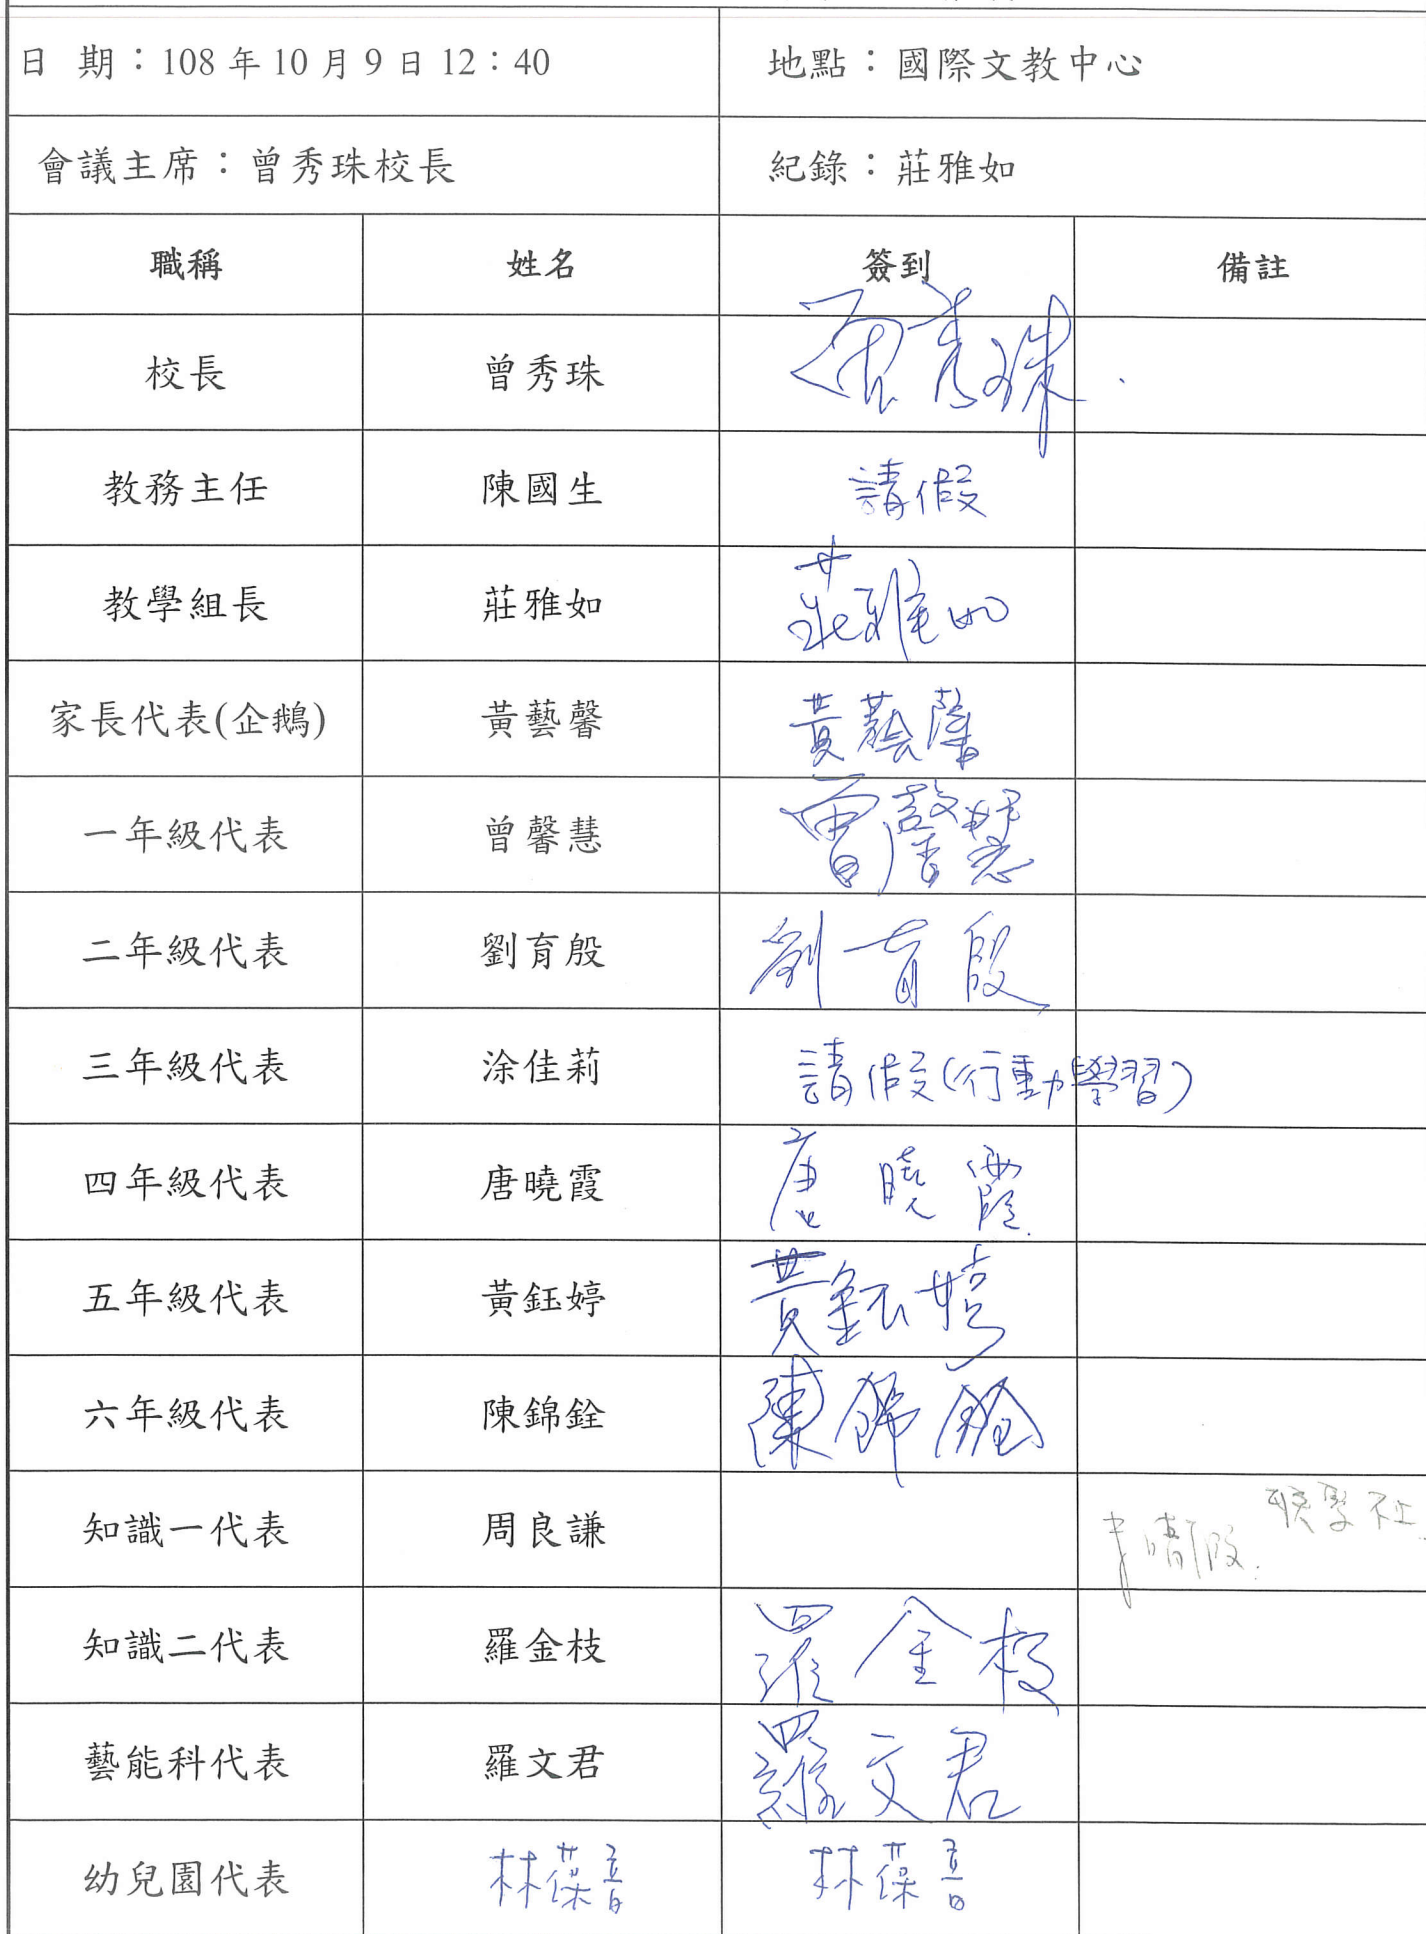 日 期：108年10月9日12：40 地點：國際文教中心
會議主席：曾秀珠校長 紀錄：莊雅如
職稱 姓名 簽到 備註
校長 曾秀珠 曾秀珠
教務主任 陳國生 請假
教學組長 莊雅如 莊雅如
家長代表(企鵝) 黃藝馨 黃藝馨
一年級代表 曾馨慧 曾馨慧
二年級代表 劉育殷 劉育殷
三年級代表 涂佳莉 請假(行動學習)
四年級代表 唐曉霞 唐曉霞
五年級代表 黃鈺婷 黃鈺婷
六年級代表 陳錦銓 陳錦銓
知識一代表 周良謙
知識二代表 羅金枝 羅金枝
藝能科代表 羅文君 羅文君
幼兒園代表 林葆音 林葆音